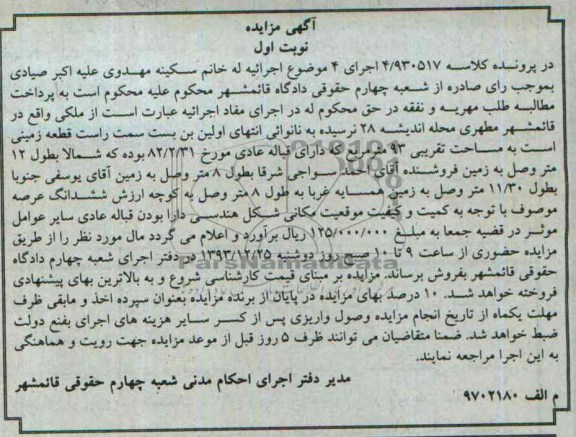 آگهی مزایده
نوبت اول
در پرونده کلاسه ۴/۹۳۰۵۱۷ اجرای ۴ موضوع اجرائیه له خانم سکینه مهدوی علیه اکبر صیادی
بموجب رای صادره از شعبه چهارم حقوقی دادگاه قائمشهر محکوم علیه محکوم است به پرداخت
مطالبه طلب مهریه و نفقه در حق محکوم له در اجرای مفاد اجرائیه عبارت است از ملکی واقع در
قائمشهر مطهری محله اندیشه ۲۸ نرسیده به نانوائی انتهای اولین بن بست سمت راست قطعه زمینی
است به مساحت تقریبی ۹۳ متر مربع که دارای قباله عادی مورخ ۸۲/۲/۳۱ بوده که شمالا بطول ۱۲
متر وصل به زمین فروشنده آقای احمد سواجی شرقا بطول ۸ متر وصل به زمین آقای یوسفی جنوبا
بطول ۱۱/۳۰ متر وصل به زمین همسایه غربا به طول ۸ متر وصل به کوچه ارزش ششدانگ عرصه
موصوف با توجه به کمیت و کیفیت موقعیت مکانی شکل هندسی دارا بودن قباله عادی سایر عوامل
موثر در قضیه جمعا به مبلغ ۱۲۵/۰۰۰/۰۰۰ ریال برآورد و اعلام می گردد مال مورد نظر را از طریق
مزایده حضوری از ساعت ۹ تا ۱۰ صبح روز دوشنبه ۱۳۹۳/۷/۲۵ در دفتر اجرای شعبه چهارم دادگاه
حقوقی قائمشهر بفروش برساند. مزایده بر مبنای قیمت کارشناسی شروع و به بالاترین بهای پیشنهادی
فروخته خواهد شد. ۱۰ درصد بهای مزایده در پایان از برنده مزایده بعنوان سپرده اخذ و مابقی ظرف
مهلت یکماه از تاریخ انجام مزایده وصول واریزی پس از کسر سایر هزینه های اجرای بفنع دولت
ضبط خواهد شد. ضمنا متقاضیان می توانند ظرف ۵ روز قبل از موعد مزایده جهت رویت و هماهنگی
به این اجرا مراجعه نمایند.
مدیر دفتر اجرای احکام مدنی شعبه چهارم حقوقی قائمشهر
م الف ۹۷۰۲۱۸۰
ParsNamadData